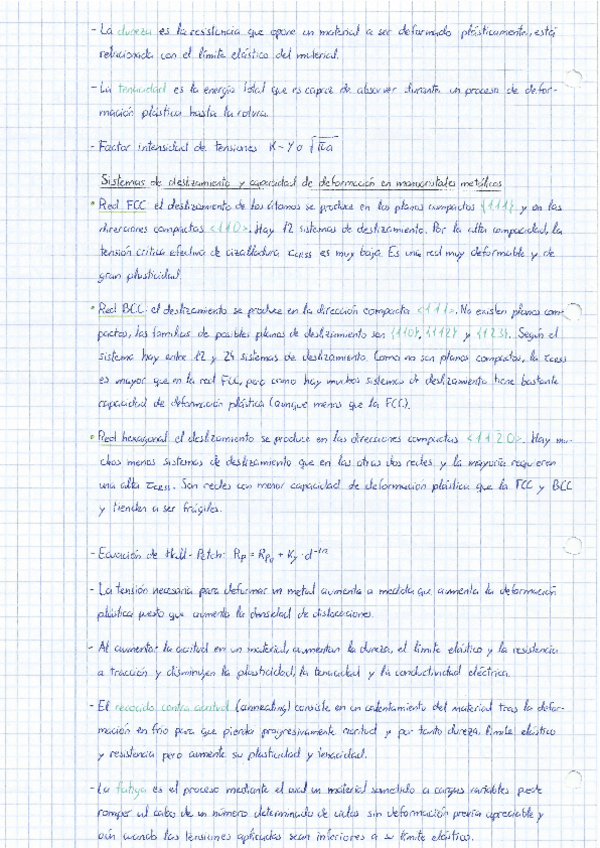 - La dureza es la resistencia que opone un material a ser deformado plásticamente, está
relacionada con el límite elástico del material.
- La tenacidad es la energía total que es capaz de absorver durante un proceso de defor-
mación plástica hasta la rotura.
- Factor intensidad de tensiones K = Y σ √πa
Sistemas de deslizamiento y capacidad de deformación en monocristales metálicos
• Red FCC: el deslizamiento de los átomos se produce en los planos compactos {111} y en las
direcciones compactas <110>. Hay 12 sistemas de deslizamiento. Por la alta compacidad, la
tensión crítica efectiva de cizalladura τCRSS es muy baja. Es una red muy deformable y de
gran plasticidad.
• Red BCC: el deslizamiento se produce en la dirección compacta <111>. No existen planos com-
pactos, las familias de posibles planos de deslizamiento son {110}, {112} y {123}. Según el
sistema hay entre 12 y 24 sistemas de deslizamiento. Como no son planos compactos, la τCRSS
es mayor que en la red FCC, pero como hay muchos sistemas de deslizamiento tiene bastante
capacidad de deformación plástica (aunque menos que la FCC).
• Red hexagonal: el deslizamiento se produce en las direcciones compactas <1120>. Hay mu-
chos menos sistemas de deslizamiento que en las otras dos redes, y la mayoría requieren
una alta τCRSS. Son redes con menor capacidad de deformación plástica que la FCC y BCC
y tienden a ser frágiles.
- Ecuación de Hall-Petch: Rp = Rp₀ + Ky · d^-1/2
- La tensión necesaria para deformar un metal aumenta a medida que aumenta la deformación
plástica puesto que aumenta la densidad de dislocaciones.
- Al aumentar la acritud en un material, aumentan la dureza, el límite elástico y la resistencia
a tracción y disminuyen la plasticidad, la tenacidad y la conductividad eléctrica.
- El recocido contra acritud (annealing) consiste en un calentamiento del material tras la defor-
mación en frío para que pierda progresivamente acritud y por tanto dureza, límite elástico
y resistencia pero aumente su plasticidad y tenacidad.
- La fatiga es el proceso mediante el cual un material sometido a cargas variables puede
romper al cabo de un número determinado de ciclos sin deformación previa apreciable y
aún cuando las tensiones aplicadas sean inferiores a su límite elástico.